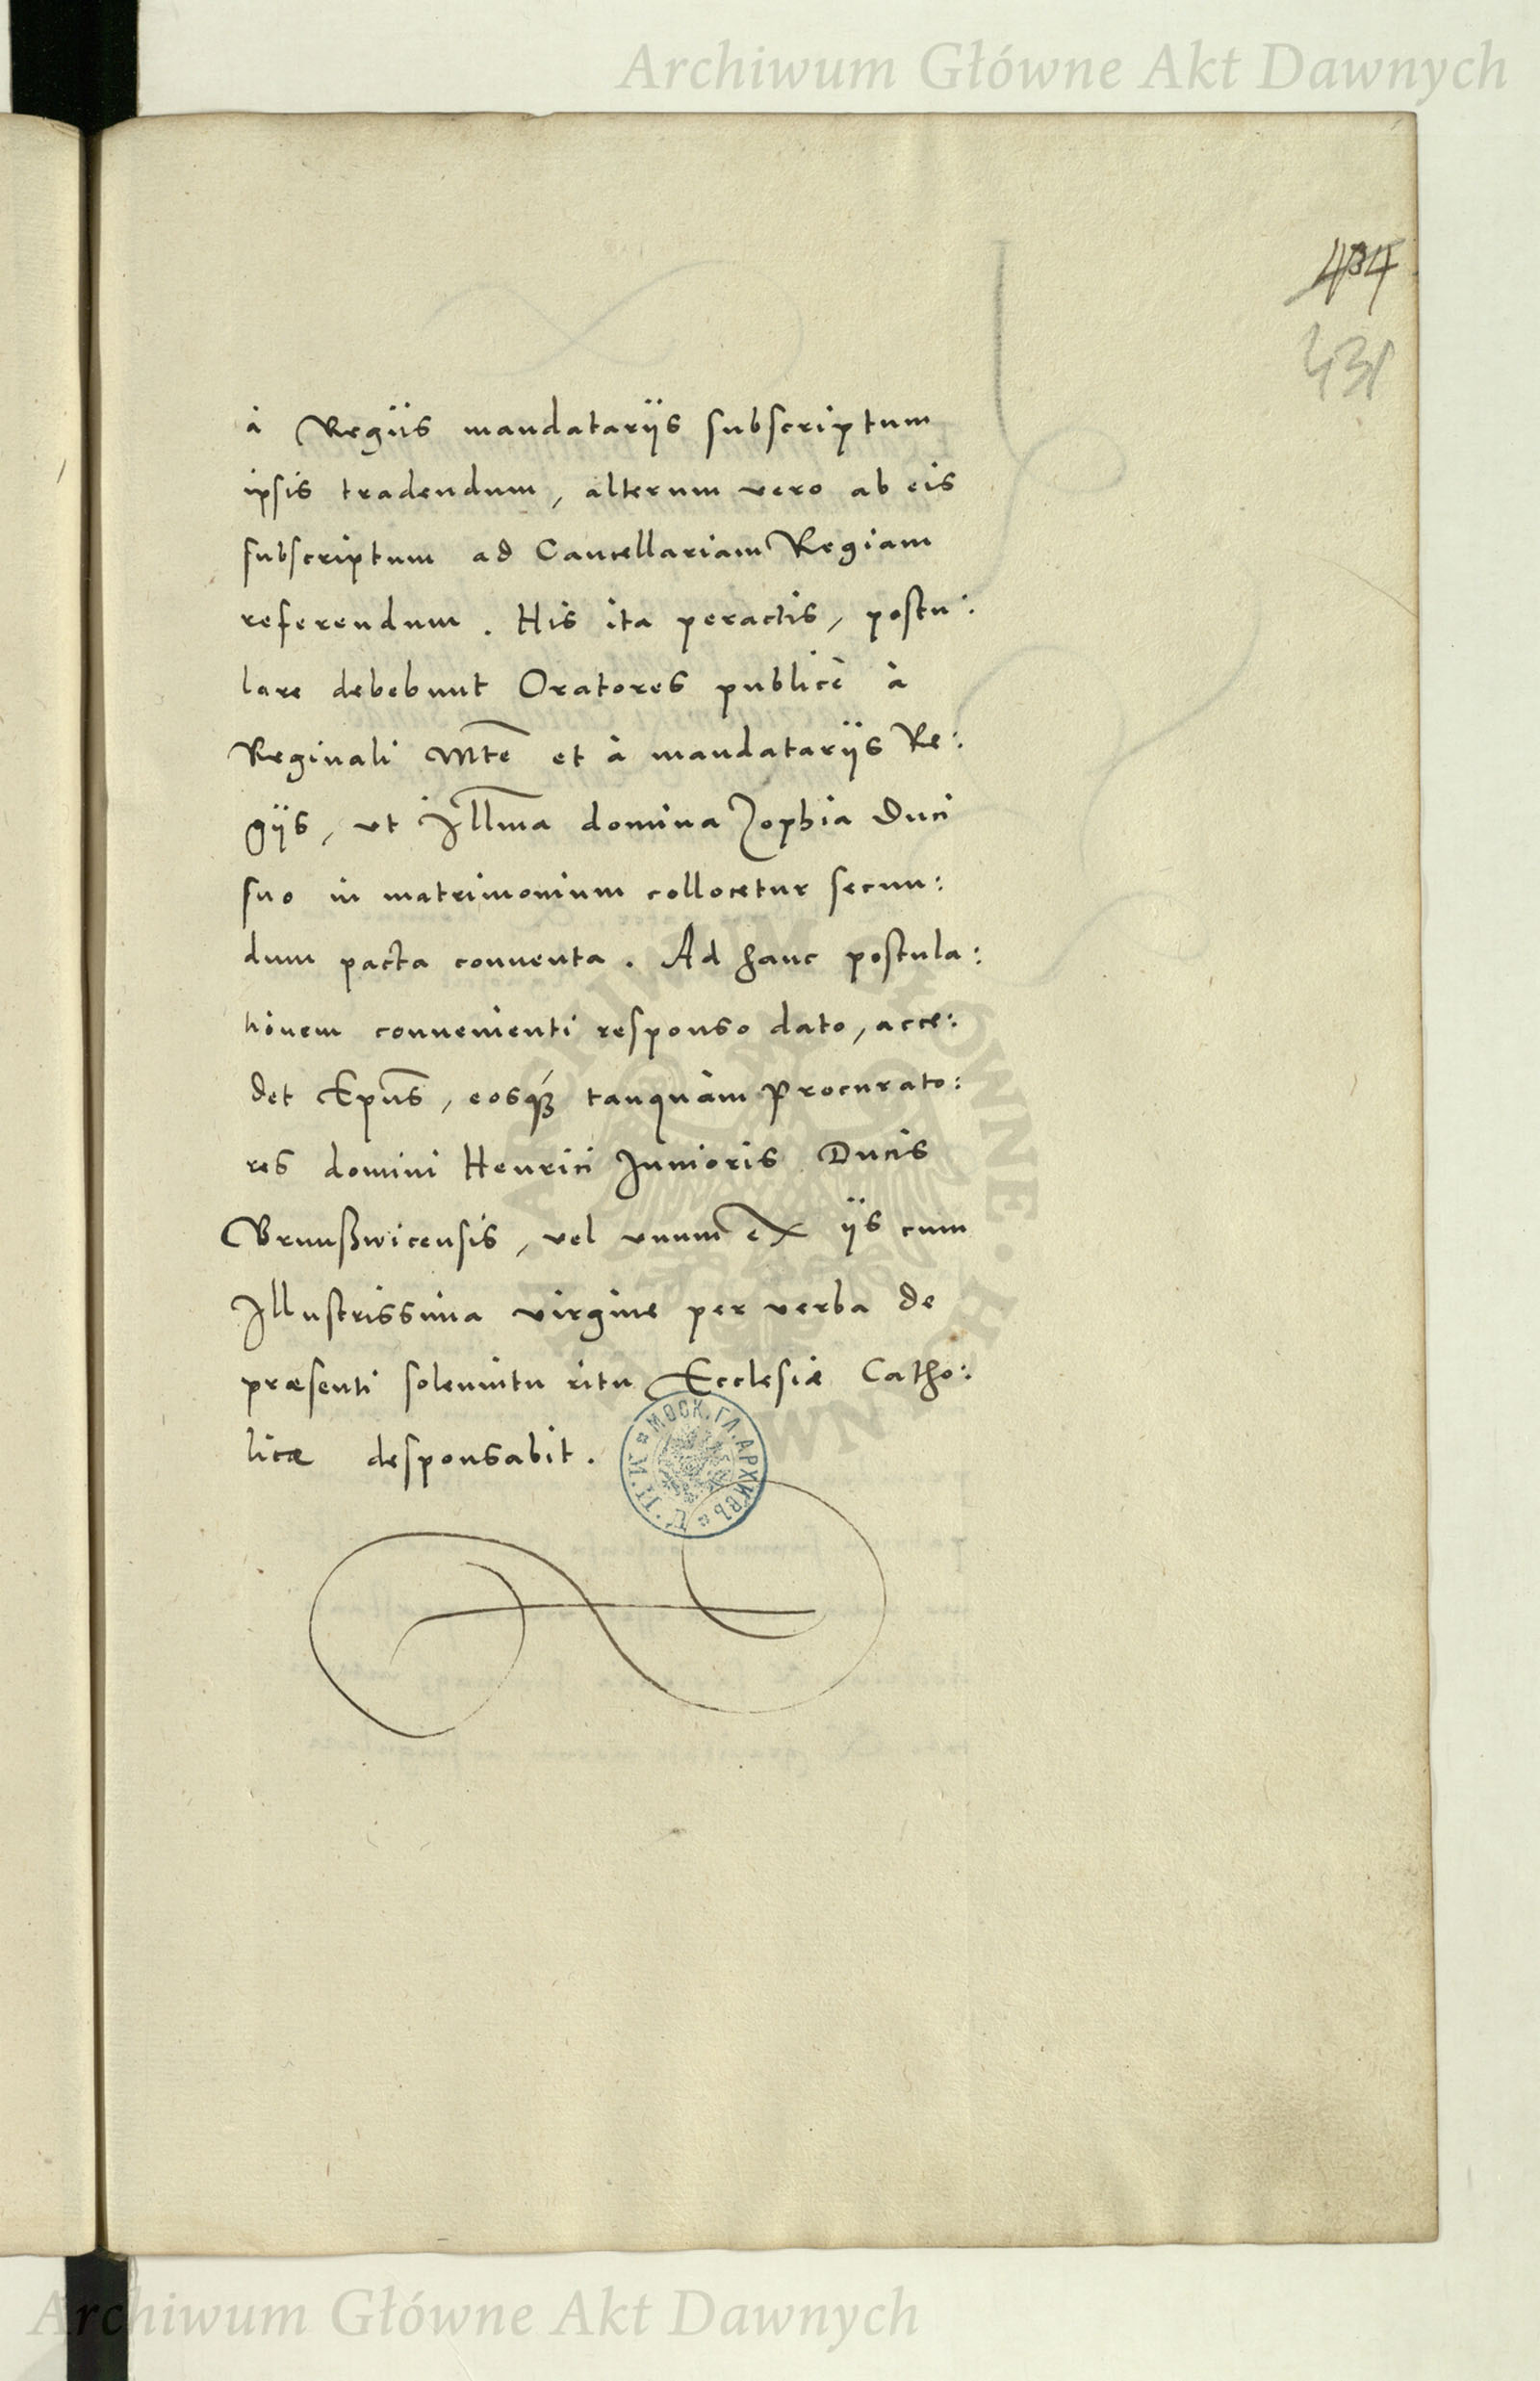 Archiwum Główne Akt Dawnych
434
431
à Regiis mandatariis subscriptum
ipsis tradendum, alterum vero ab eis
subscriptum ad Cancellariam Regiam
referendum. His ita peractis, postu:
lare debebunt Oratores publicè à
Reginali Mte et à mandatariis Re:
giis, ut Illma domina Zophia Duci
suo in matrimonium collocetur secun:
dum pacta conventa. Ad hanc postula:
tionem convenienti responso dato, acce:
det Epus, eosque tanquàm Procurato:
res domini Henrici Junioris Ducis
Brunßwicensis, vel unum ex iis cum
Illustrissima virgine per verba de
præsenti solennitu ritu Ecclesiæ Catho:
licæ desponsabit.
МОСК. ГЛ. АРХИВЪ
Archiwum Główne Akt Dawnych